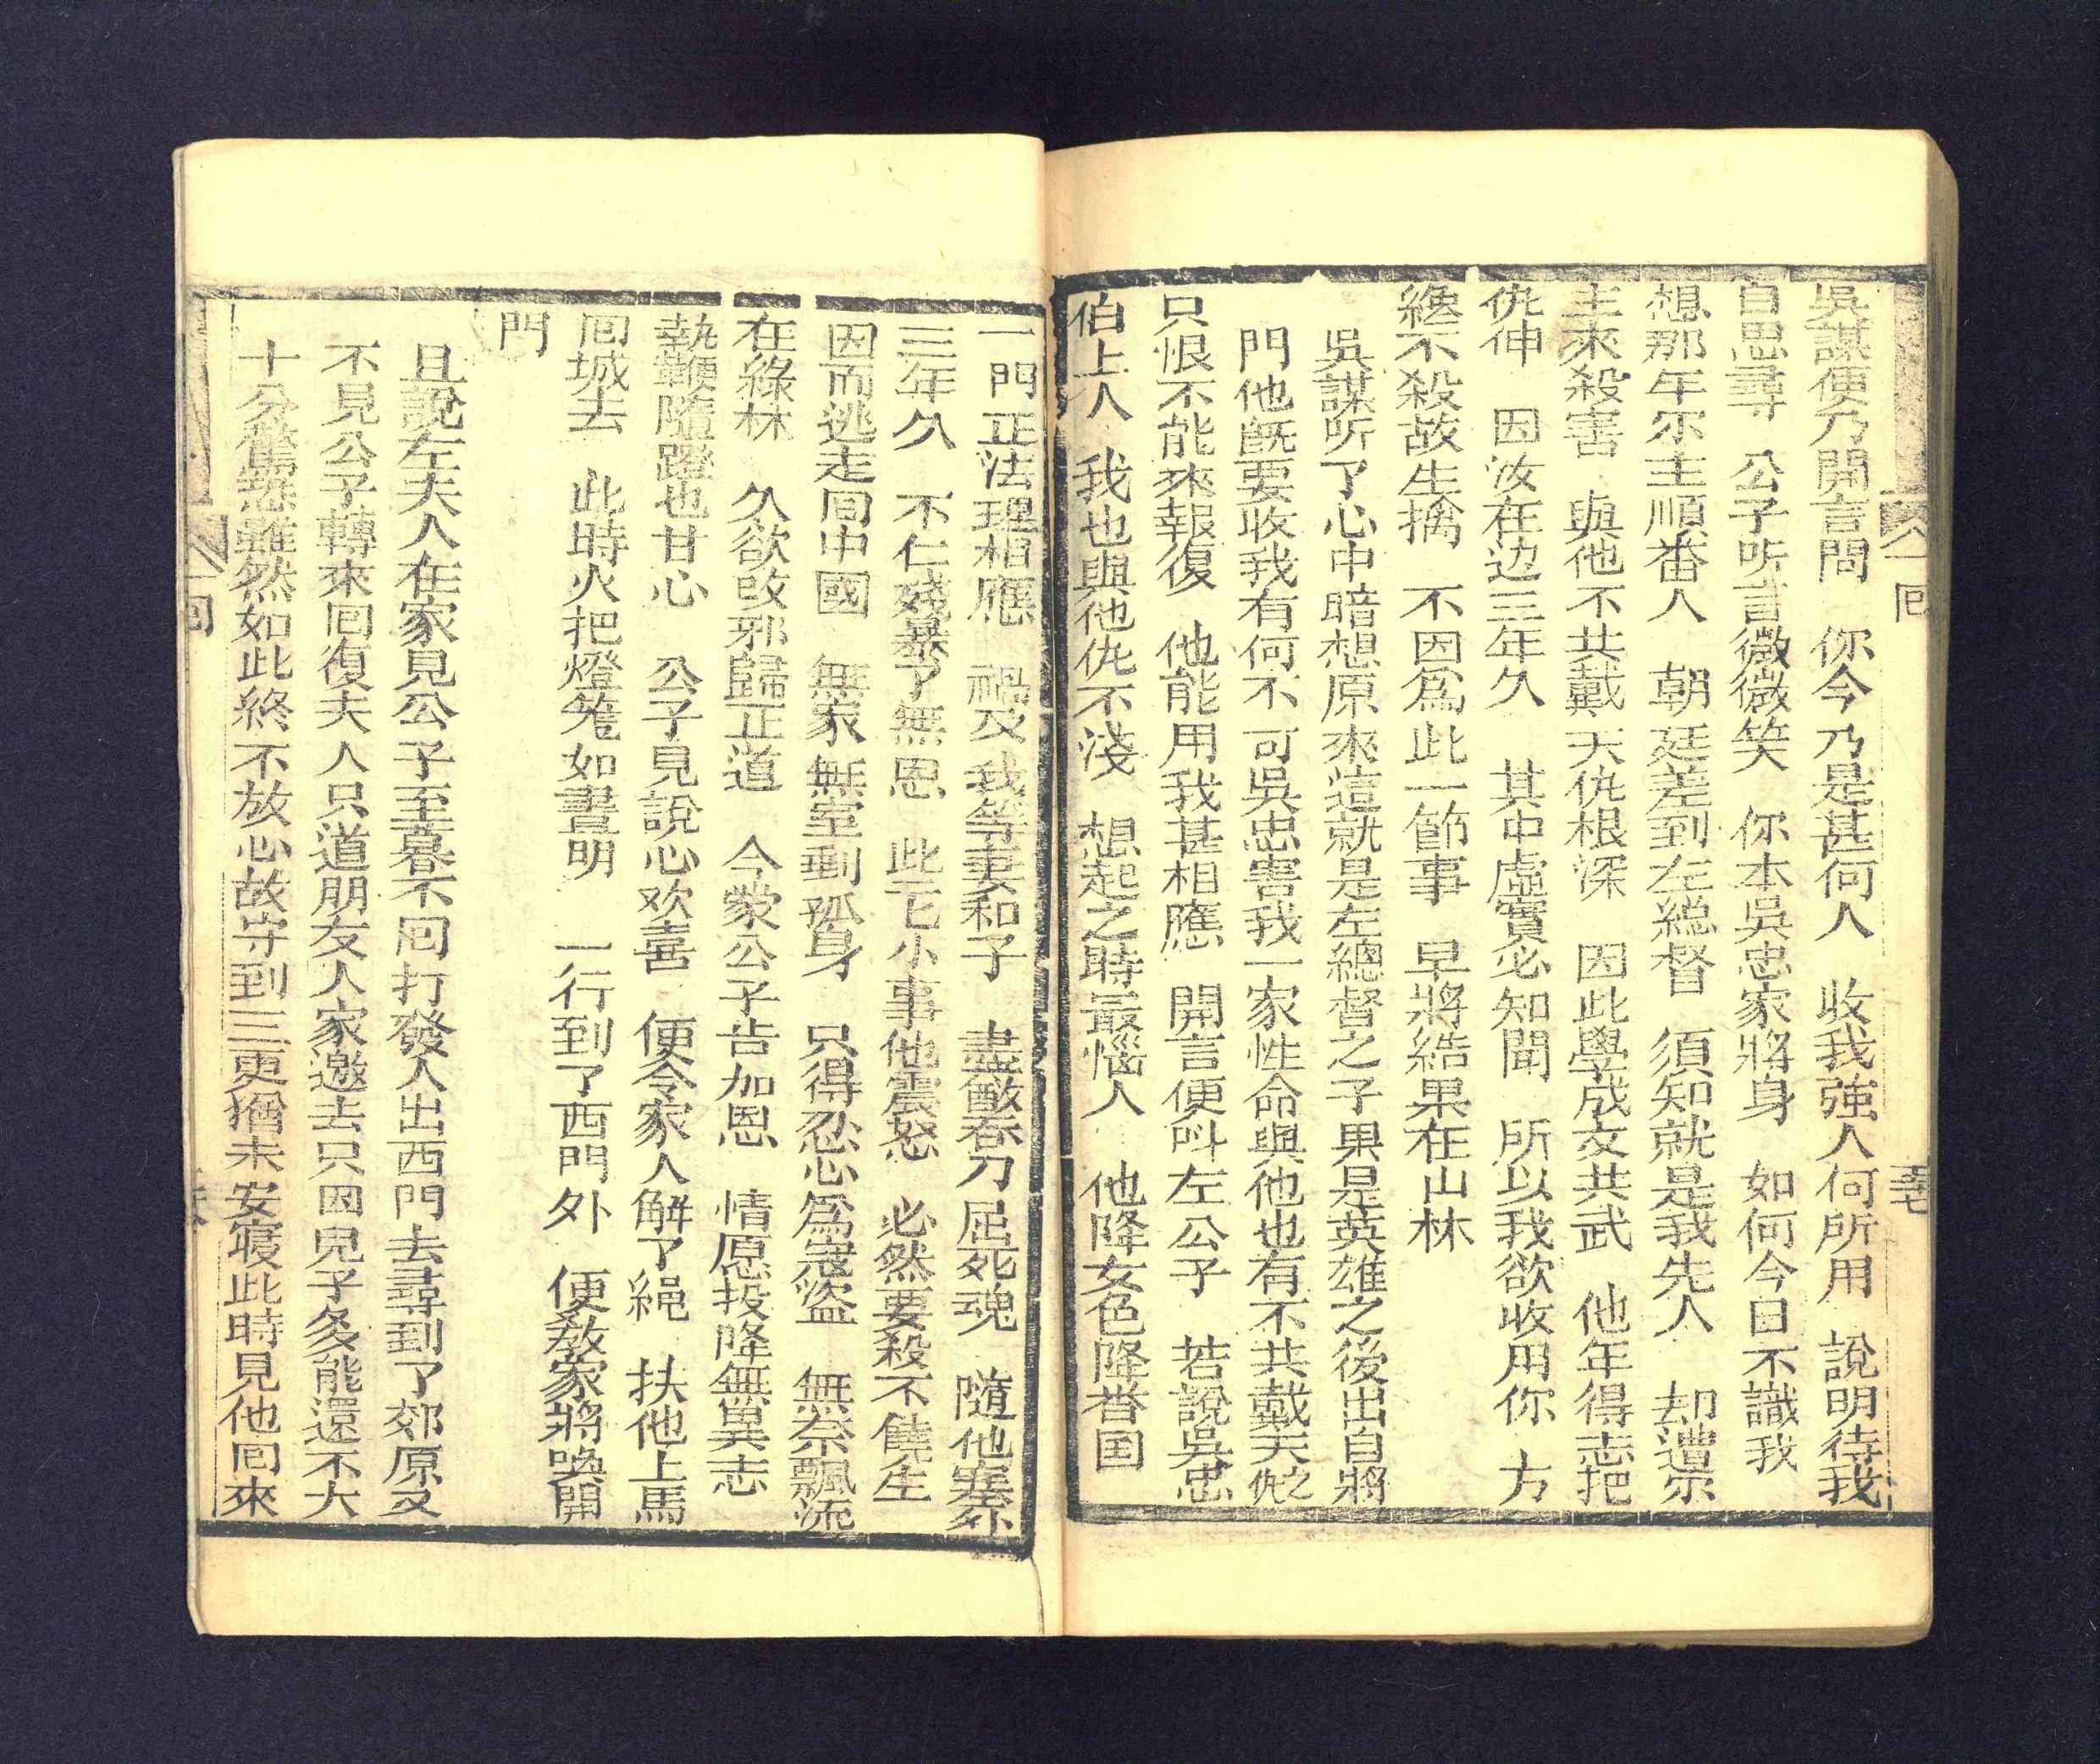 吳謀便乃開言問　你今乃是甚何人　收我強人何所用　說明待我
自思尋　公子听言微微笑　你本吳忠家將身　如何今日不識我
想那年尔主順畨人　朝廷差到左總督　須知就是我先人　却遭尔
主來殺害　與他不共戴天仇根深　因此學成文共武　他年得志把
仇伸　因汝在边三年久　其中虛實必知聞　所以我欲收用你　方
終不殺故生擒　不因爲此一節事　早將結果在山林
吳謀听了心中暗想原來這就是左總督之子果是英雄之後出自將
門他旣要收我有何不可吳忠害我一家性命與他也有不共戴天之仇
只恨不能來報復　他能用我甚相應　開言便叫左公子　若說吳忠
伯上人　我也與他仇不淺　想起之時最惱人　他降女色降畨国
一門正法理相應　禍及我等妻和子　盡敵春刀屈死魂　隨他塞外
三年久　不仁殘暴了無恩　此三匕小事他震怒　必然要殺不饒生
因而逃走囘中國　無家無室剩孤身　只得忍心爲寇盜　無奈飄流
在綠林　久欲改邪歸正道　今蒙公子告加恩　情愿投降無異志
執鞭隨蹬也甘心　公子見說心欢喜　便令家人解了繩　扶他上馬
囘城去　此時火把燈笼如晝明　一行到了西門外　便教家將喚開
門
且說左夫人在家見公子至暮不囘打發人出西門去尋到了郊原又
不見公子轉來囘復夫人只道朋友人家邀去只因兒子多能還不大
十分驚慌雖然如此終不放心故守到三更猶未安寢此時見他囘來
一囘